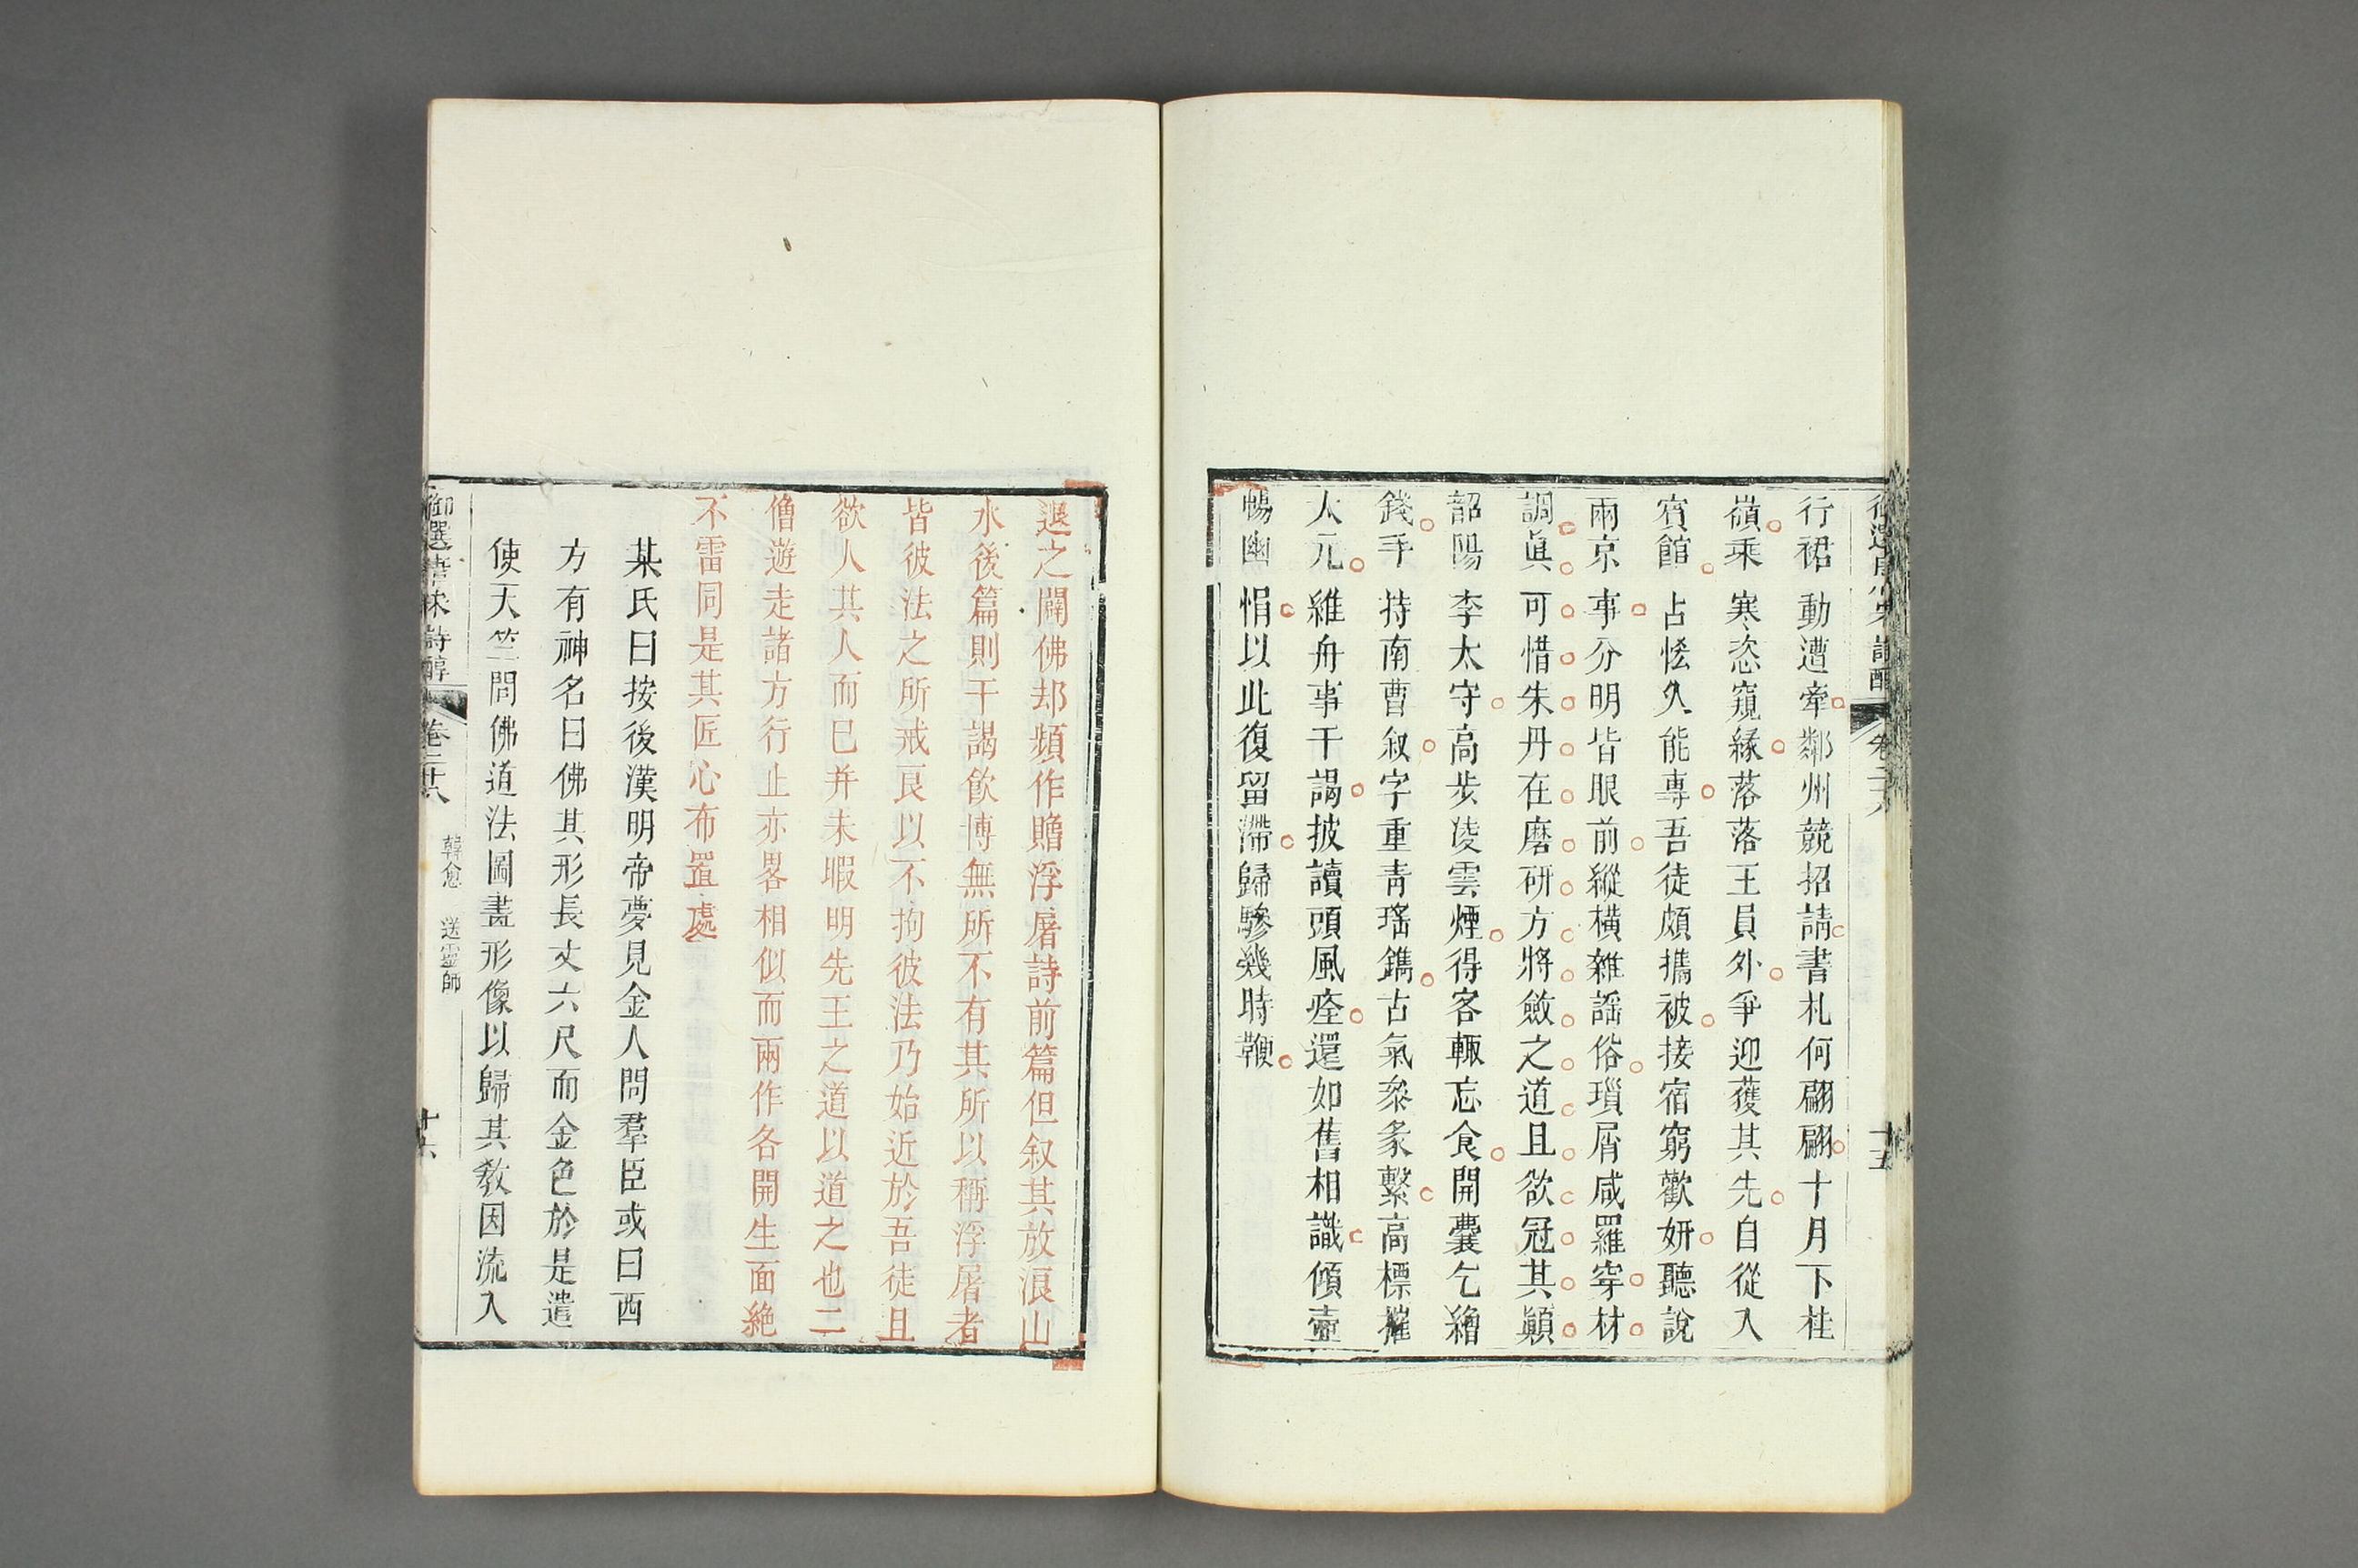 御選唐宋詩醇
卷二十八
十五
行裙動遭牽鄰州競招請書札何翩翩十月下桂
嶺乘寒恣窺緣落落王員外爭迎獲其先自從入
賓館占恡久能專吾徒頗攜被接宿窮歡妍聽說
兩京事分明皆眼前縱橫雜謡俗瑣屑咸羅穿材
調眞可惜朱丹在磨研方將斂之道且欲冠其顚
韶陽李太守高步淩雲煙得客輒忘食開囊乞繒
錢手持南曹叙字重青瑤鐫古氣叅彖繫高標摧
太元維舟事干謁披讀頭風痊還如舊相識傾壺
暢幽悁以此復留滯歸驂幾時鞭
退之闢佛却頻作贈浮屠詩前篇但叙其放浪山
水後篇則干謁飮博無所不有其所以稱浮屠者
皆彼法之所戒良以不拘彼法乃始近於吾徒且
欲人其人而已并未暇明先王之道以道之也二
僧遊走諸方行止亦畧相似而兩作各開生面絶
不雷同是其匠心布置處
某氏曰按後漢明帝夢見金人問羣臣或曰西
方有神名曰佛其形長丈六尺而金色於是遣
使天竺問佛道法圖畫形像以歸其敎因流入
御選唐宋詩醇
卷二十八
韓愈 送靈師
十六